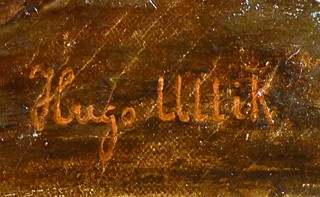 Hugo Ullik